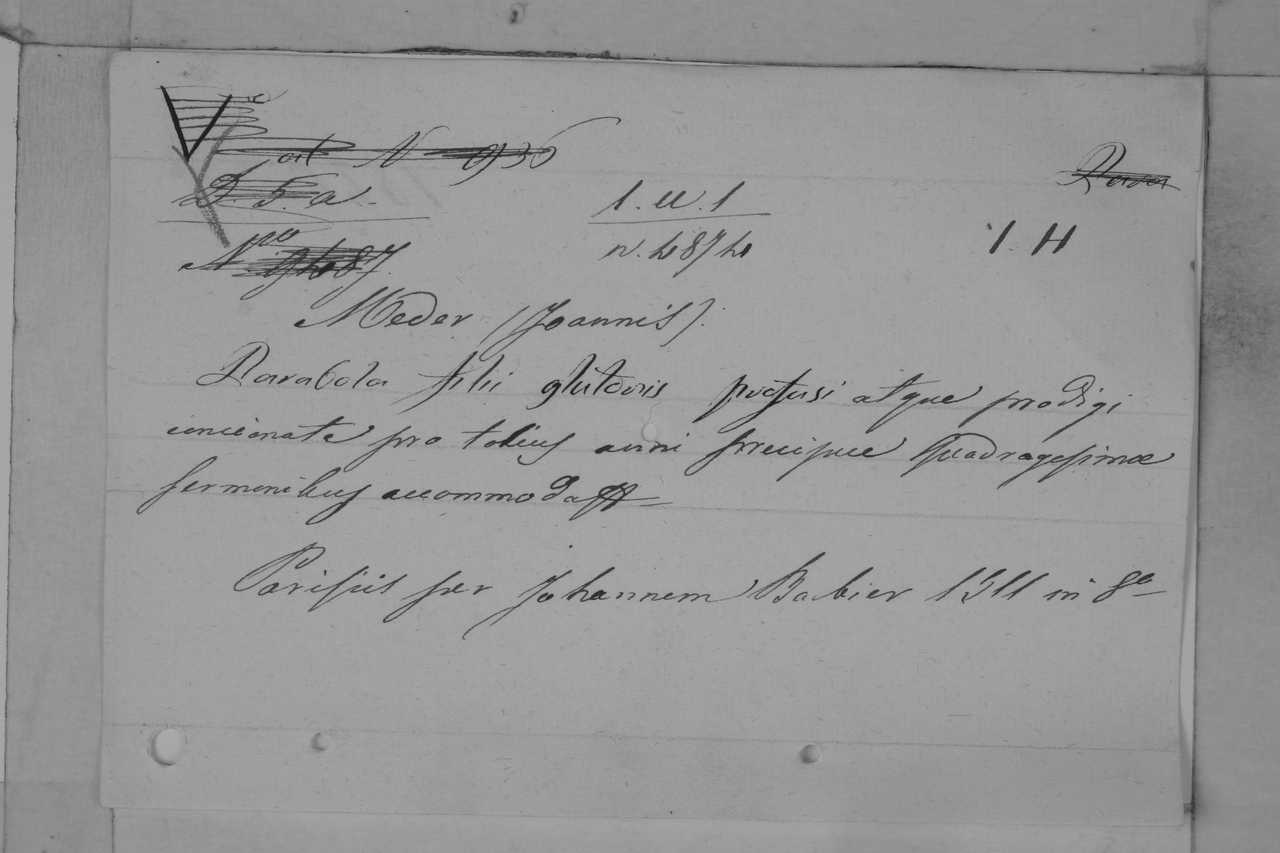 V
D. 5. a.
1. U. 1
n. 4874
1. H
Meder (Joannis).
Parabola filii glutonis profusi atque prodigi
concionate pro totius anni precipue Quadragesimæ
sermonibus accommodat
Parisiis per Johannem Barbier 1511 in 8º